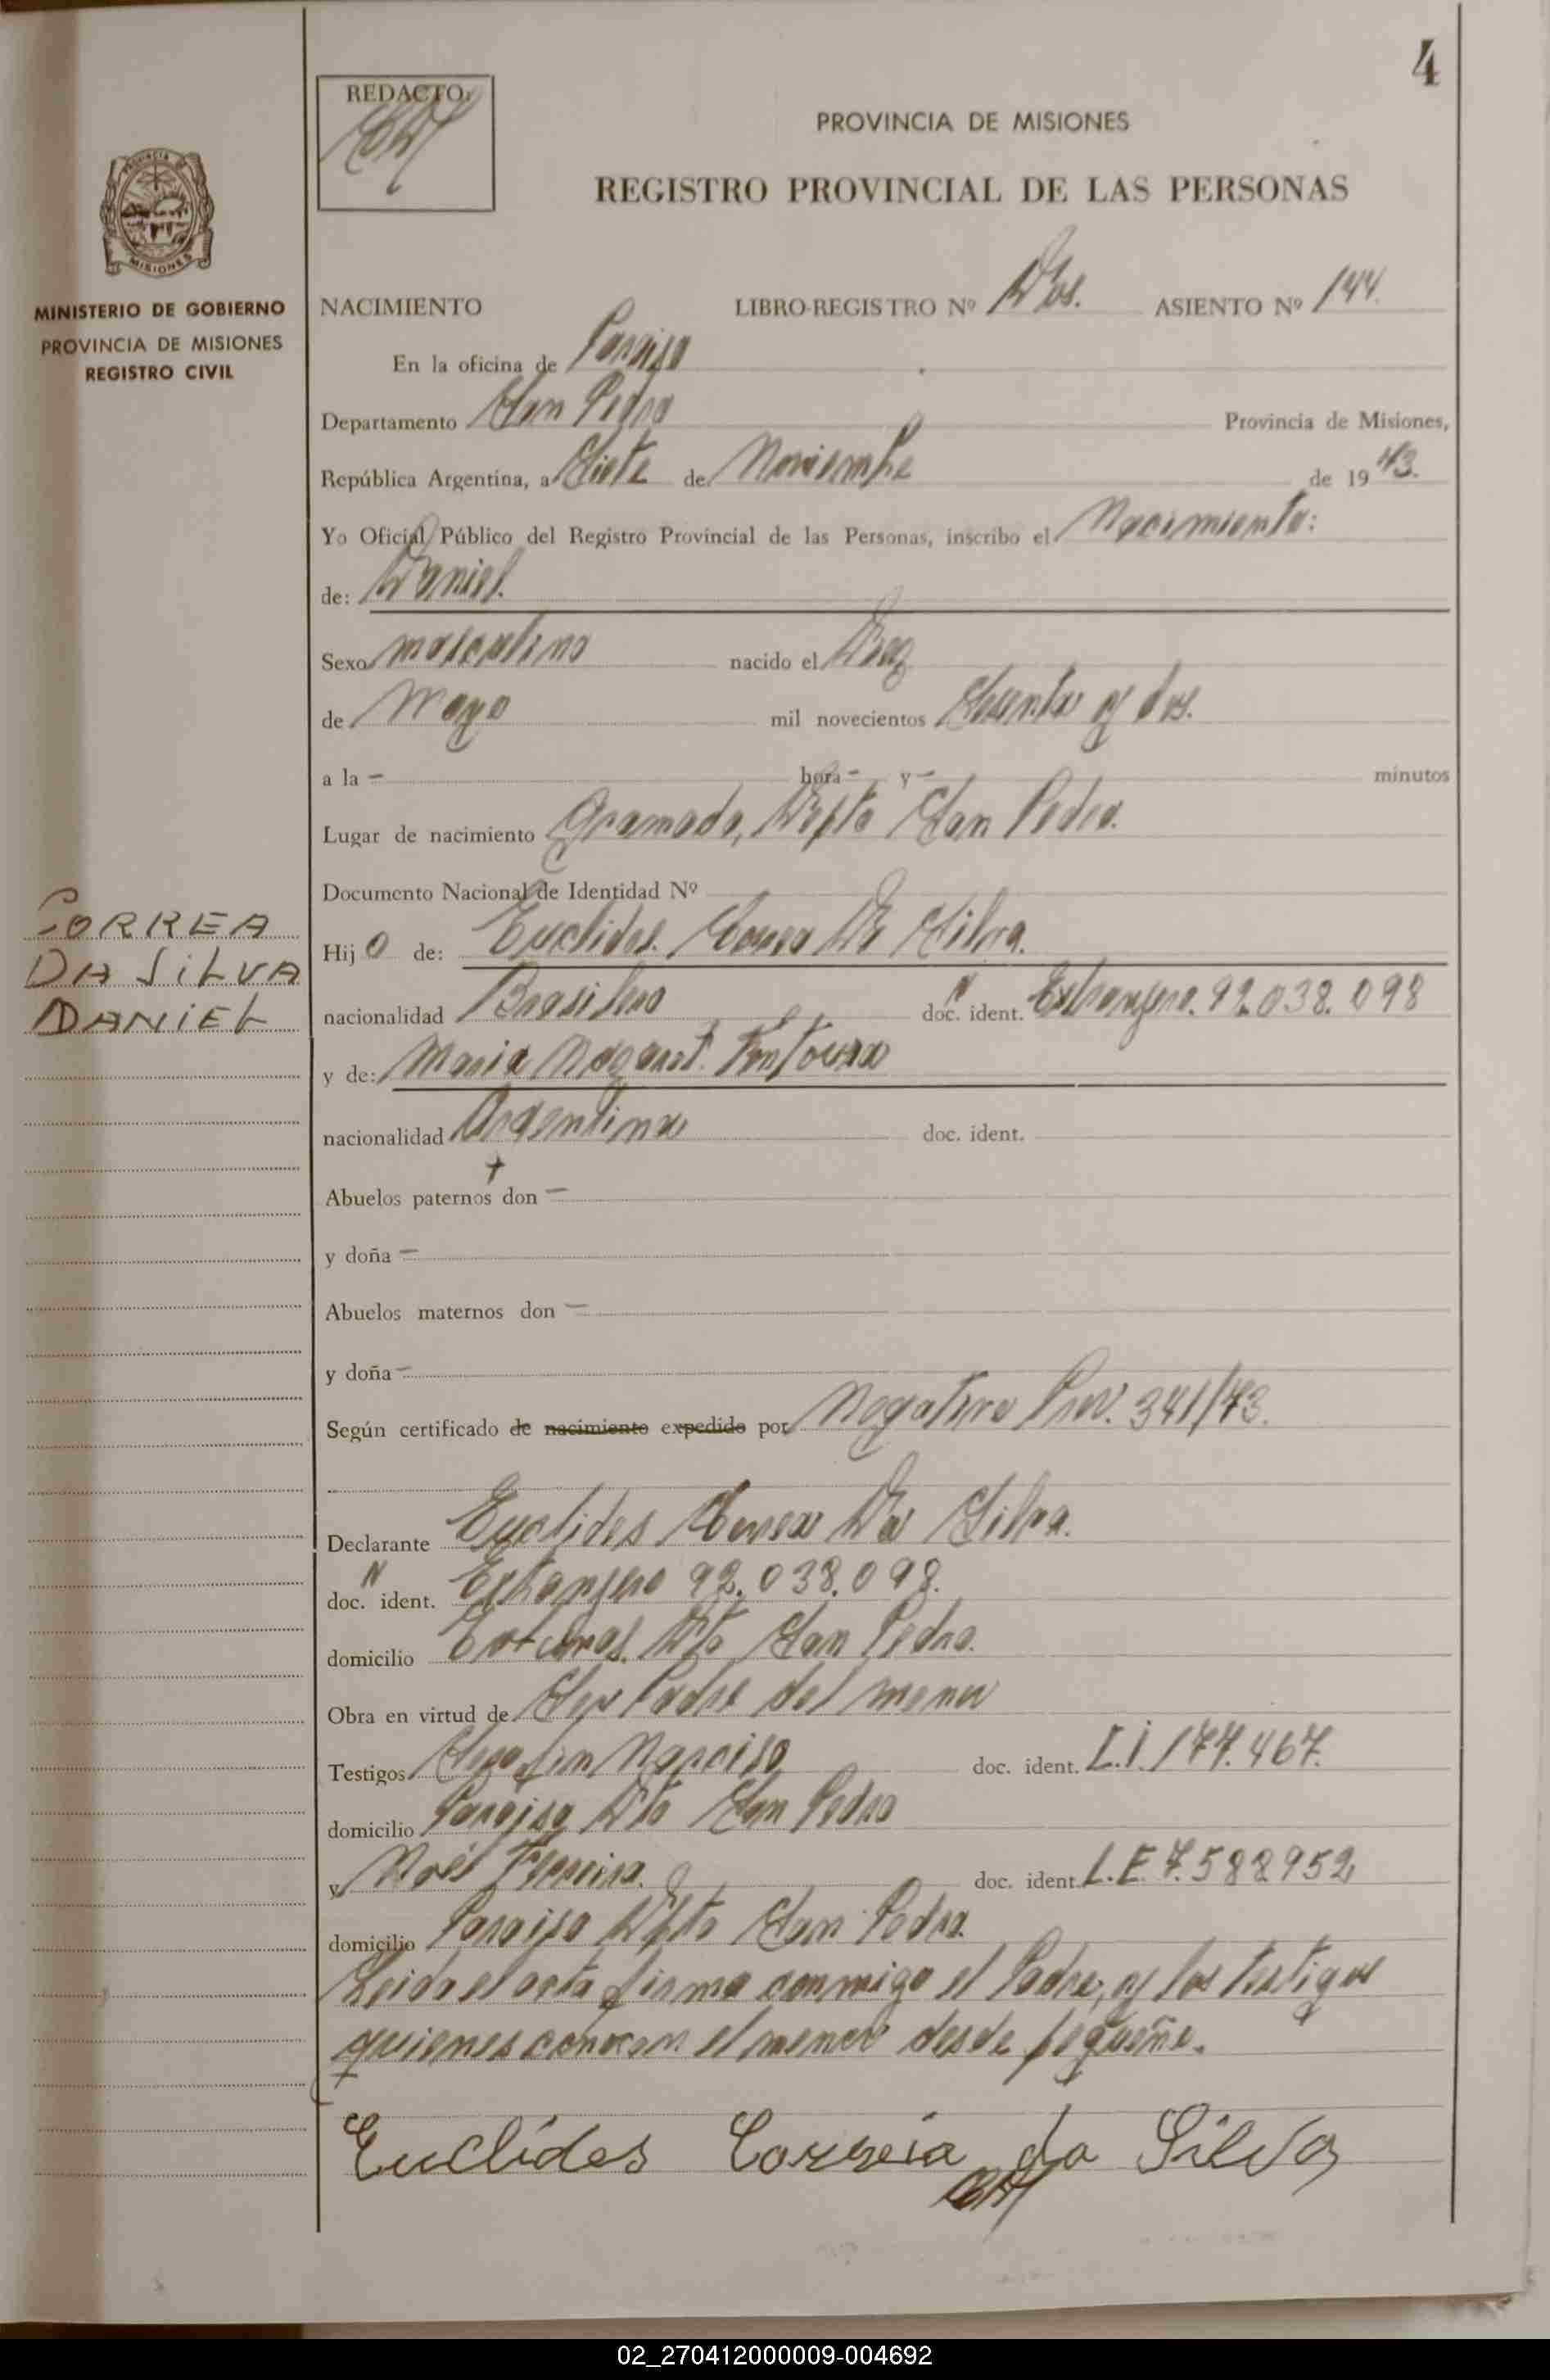 4
REDACTO:
PROVINCIA DE MISIONES
REGISTRO PROVINCIAL DE LAS PERSONAS
MISIONES
MINISTERIO DE GOBIERNO
PROVINCIA DE MISIONES
REGISTRO CIVIL
NACIMIENTO LIBRO-REGISTRO Nº Dos. ASIENTO Nº 144
En la oficina de Paraiso
Departamento San Pedro Provincia de Misiones,
República Argentina, a Siete de Noviembre de 1973.
Yo Oficial Público del Registro Provincial de las Personas, inscribo el Nacimiento:
de: Daniel.
Sexo masculino nacido el Diez
de Mayo mil novecientos Sesenta y dos.
a la - hora - y - minutos
Lugar de nacimiento Gramado, Depto San Pedro.
Documento Nacional de Identidad Nº
CORREA
DA SILVA
DANIEL
Hijo de: Euclides Correa Da Silva.
nacionalidad Brasilero doc. N ident. Extranjero. 92.038.098
y de: Maria Margaret. Fontoura
nacionalidad Argentina doc. ident.
Abuelos paternos don -
y doña -
Abuelos maternos don -
y doña -
Según certificado de nacimiento expedido por Negativo Prov. 341/73.
Declarante Euclides Correa Da Silva.
doc. N ident. Extranjero 92.038.098.
domicilio Dto San Pedro.
Obra en virtud de Ser Padre del menor
Testigos Narciso doc. ident. C.I. 177.467.
domicilio Paraiso Dto San Pedro
y Noé Ferreira. doc. ident. L.E. 7.588952
domicilio Paraiso Depto San Pedro.
Leida el acta firma conmigo el Padre, y los testigos
quienes conocen el menor desde pequeño.
Euclídes Correia da Silva
02_270412000009-004692